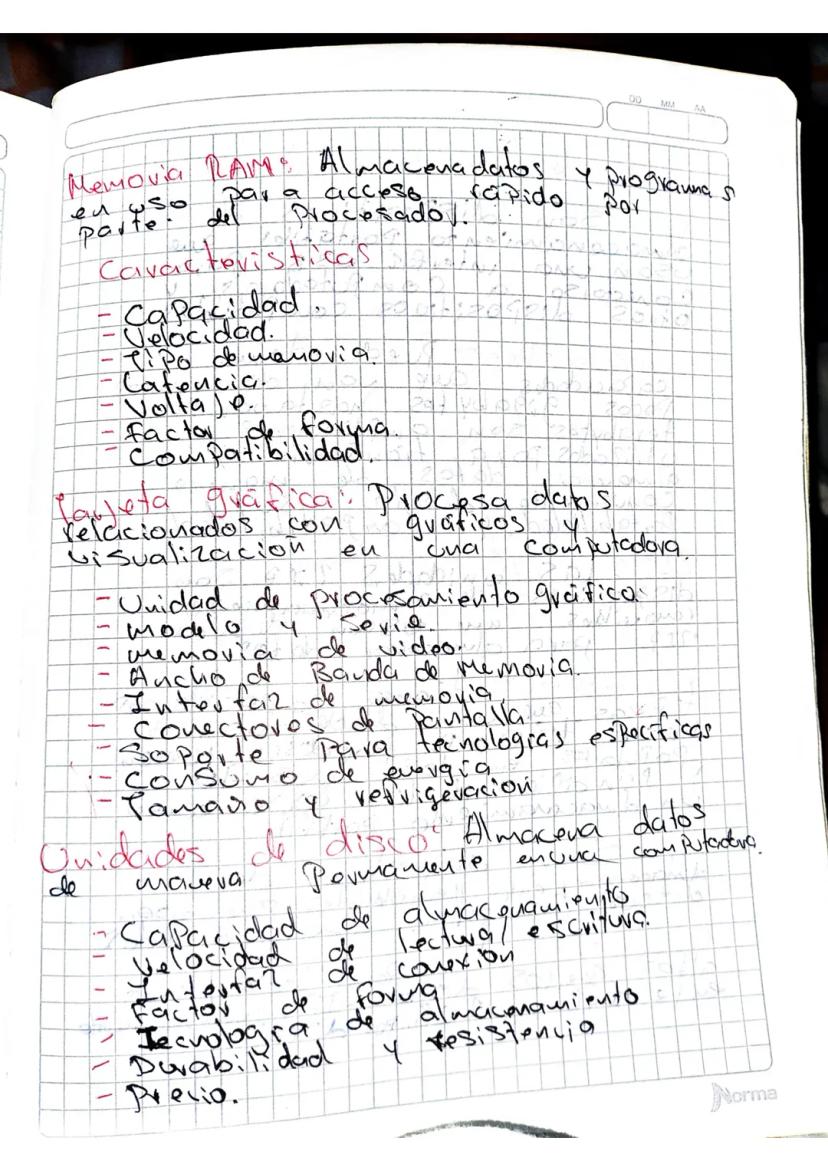 DD MM AA
Memoria RAM: Almacena datos y programas
en uso para acceso rápido por
parte del procesador.
Caracteristicas
- Capacidad.
- Velocidad.
- Tipo de memoria.
- Latencia.
- Voltaje.
- factor de forma.
- Compatibilidad.
Tarjeta gráfica: Procesa datos
relacionados con gráficos y
visualización en una computadora.
- Unidad de procesamiento gráfico.
- modelo y serie
- memoria de video.
- Ancho de Banda de memoria.
- Interfaz de memoria
- Conectores de pantalla
- Soporte Para tecnologías especificas
- Consumo de energía
- Tamaño y refrigeracion
Unidades de disco: Almacena datos
de manera Permanente en una computadora.
- Capacidad de almacenamiento
- Velocidad de lectura/escritura.
- Interfaz de conexion
- Factor de forma
- Tecnologia de almacenamiento
- Durabilidad y resistencia
- Precio.
Norma